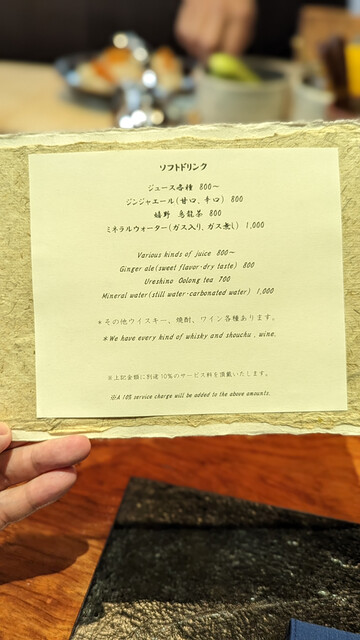 ソフトドリンク
ジュース各種 800～
ジンジャエール(甘口、辛口) 800
嬉野 烏龍茶 800
ミネラルウォーター(ガス入り、ガス無し) 1,000
Various kinds of juice 800～
Ginger ale(sweet flavor・dry taste) 800
Ureshino Oolong tea 700
Mineral water(still water・carbonated water) 1,000
＊その他ウイスキー、焼酎、ワイン各種あります。
＊We have every kind of whisky and shouchu , wine.
※上記金額に別途10%のサービス料を頂戴いたします。
※A 10% service charge will be added to the above amounts.